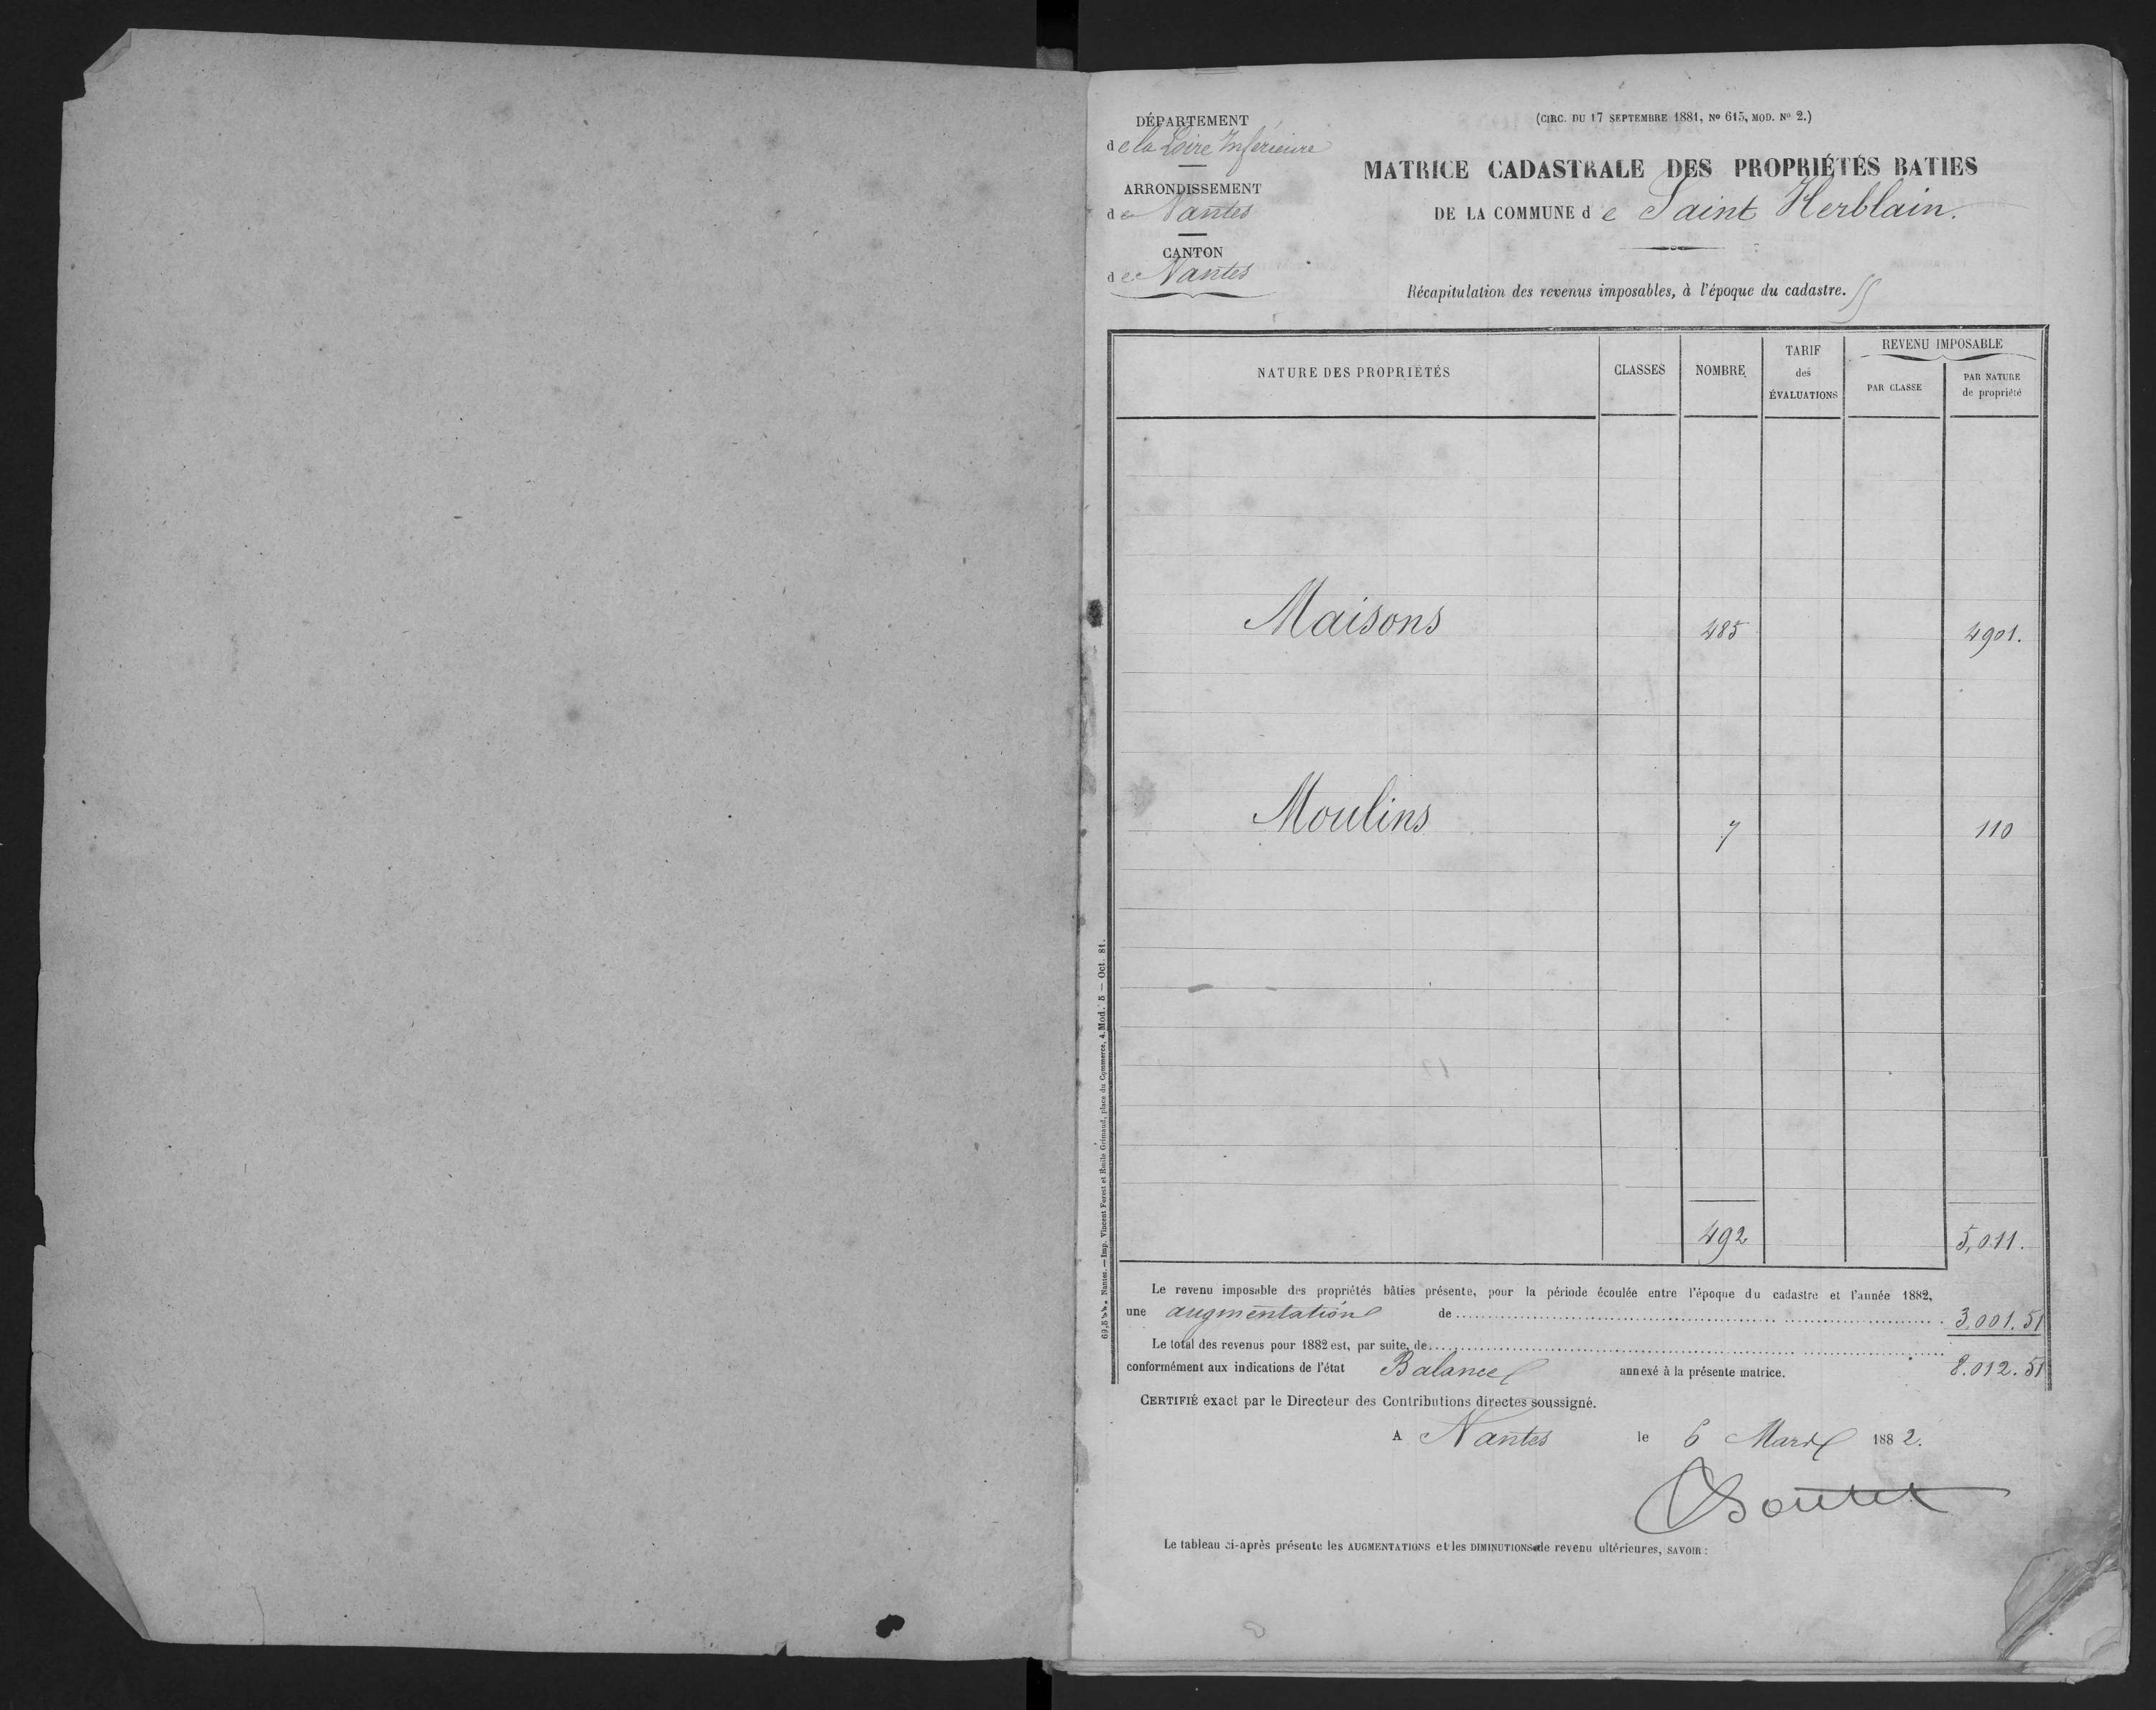 DÉPARTEMENT
de la Loire Inférieure
ARRONDISSEMENT
de Nantes
CANTON
de Nantes
(CIRC. DU 17 SEPTEMBRE 1881, No 615, MOD. No 2.)
MATRICE CADASTRALE DES PROPRIÉTÉS BATIES
DE LA COMMUNE de Saint Herblain.
Récapitulation des revenus imposables, à l'époque du cadastre.
NATURE DES PROPRIÉTÉS
CLASSES
NOMBRE
TARIF
des
ÉVALUATIONS
REVENU IMPOSABLE
PAR CLASSE
PAR NATURE
de propriété
Maisons 485 4901.
Moulins 7 110
492 5,011.
Le revenu imposable des propriétés bâties présente, pour la période écoulée entre l'époque du cadastre et l'année 1882,
une augmentation de 3.001.51
Le total des revenus pour 1882 est, par suite, de
conformément aux indications de l'état Balance annexé à la présente matrice. 8.012.51
CERTIFIÉ exact par le Directeur des Contributions directes soussigné.
A Nantes le 6 Mars 1882.
Le tableau ci-après présente les AUGMENTATIONS et les DIMINUTIONS de revenu ultérieures, SAVOIR :
Nantes. — Imp. Vincent Forest et Emile Grimaud, place du Commerce, 4. Mod. 5 — Oct. 81.